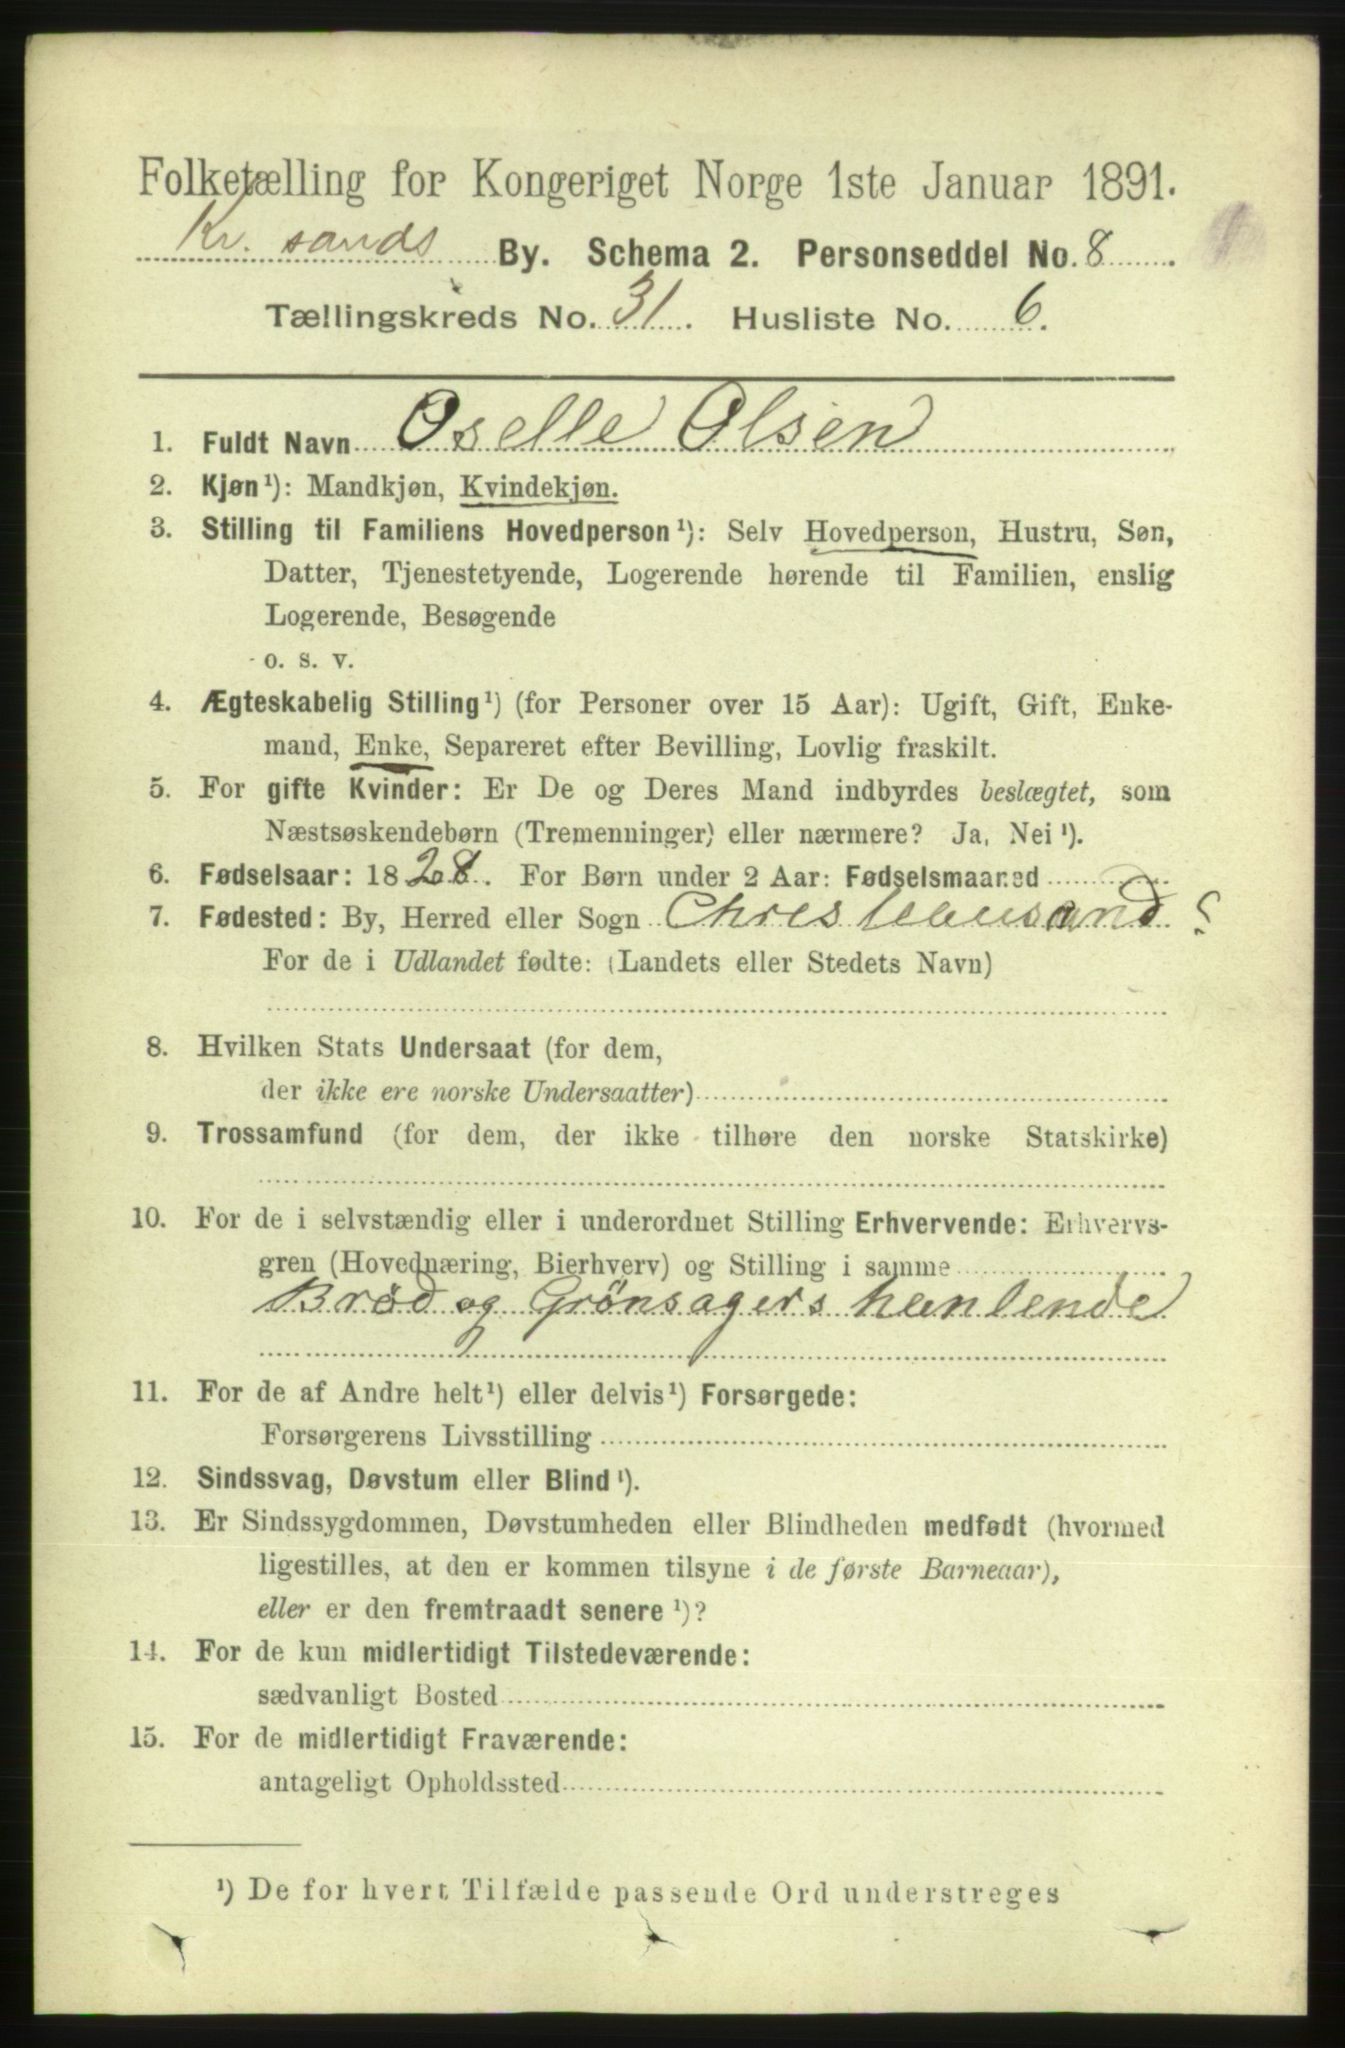 Folketælling for Kongeriget Norge 1ste Januar 1891.
Kr. sands By. Schema 2. Personseddel No. 8.
Tællingskreds No. 31. Husliste No. 6.
1. Fuldt Navn Oselle Olsen
2. Kjøn¹): Mandkjøn, Kvindekjøn.
3. Stilling til Familiens Hovedperson¹): Selv Hovedperson, Hustru, Søn,
Datter, Tjenestetyende, Logerende hørende til Familien, enslig
Logerende, Besøgende
o. s. v.
4. Ægteskabelig Stilling¹) (for Personer over 15 Aar): Ugift, Gift, Enke-
mand, Enke, Separeret efter Bevilling, Lovlig fraskilt.
5. For gifte Kvinder: Er De og Deres Mand indbyrdes beslægtet, som
Næstsøskendebørn (Tremenninger) eller nærmere? Ja, Nei¹).
6. Fødselsaar: 1828. For Børn under 2 Aar: Fødselsmaaned
7. Fødested: By, Herred eller Sogn
For de i Udlandet fødte: (Landets eller Stedets Navn)
8. Hvilken Stats Undersaat (for dem,
der ikke ere norske Undersaatter)
9. Trossamfund (for dem, der ikke tilhøre den norske Statskirke)
10. For de i selvstændig eller i underordnet Stilling Erhvervende: Erhvervs-
gren (Hovednæring, Bierhverv) og Stilling i samme
Brød og Grønsagers
11. For de af Andre helt¹) eller delvis¹) Forsørgede:
Forsørgerens Livsstilling
12. Sindssvag, Døvstum eller Blind¹).
13. Er Sindssygdommen, Døvstumheden eller Blindheden medfødt (hvormed
ligestilles, at den er kommen tilsyne i de første Barneaar),
eller er den fremtraadt senere¹)?
14. For de kun midlertidigt Tilstedeværende:
sædvanligt Bosted
15. For de midlertidigt Fraværende:
antageligt Opholdssted
¹) De for hvert Tilfælde passende Ord understreges